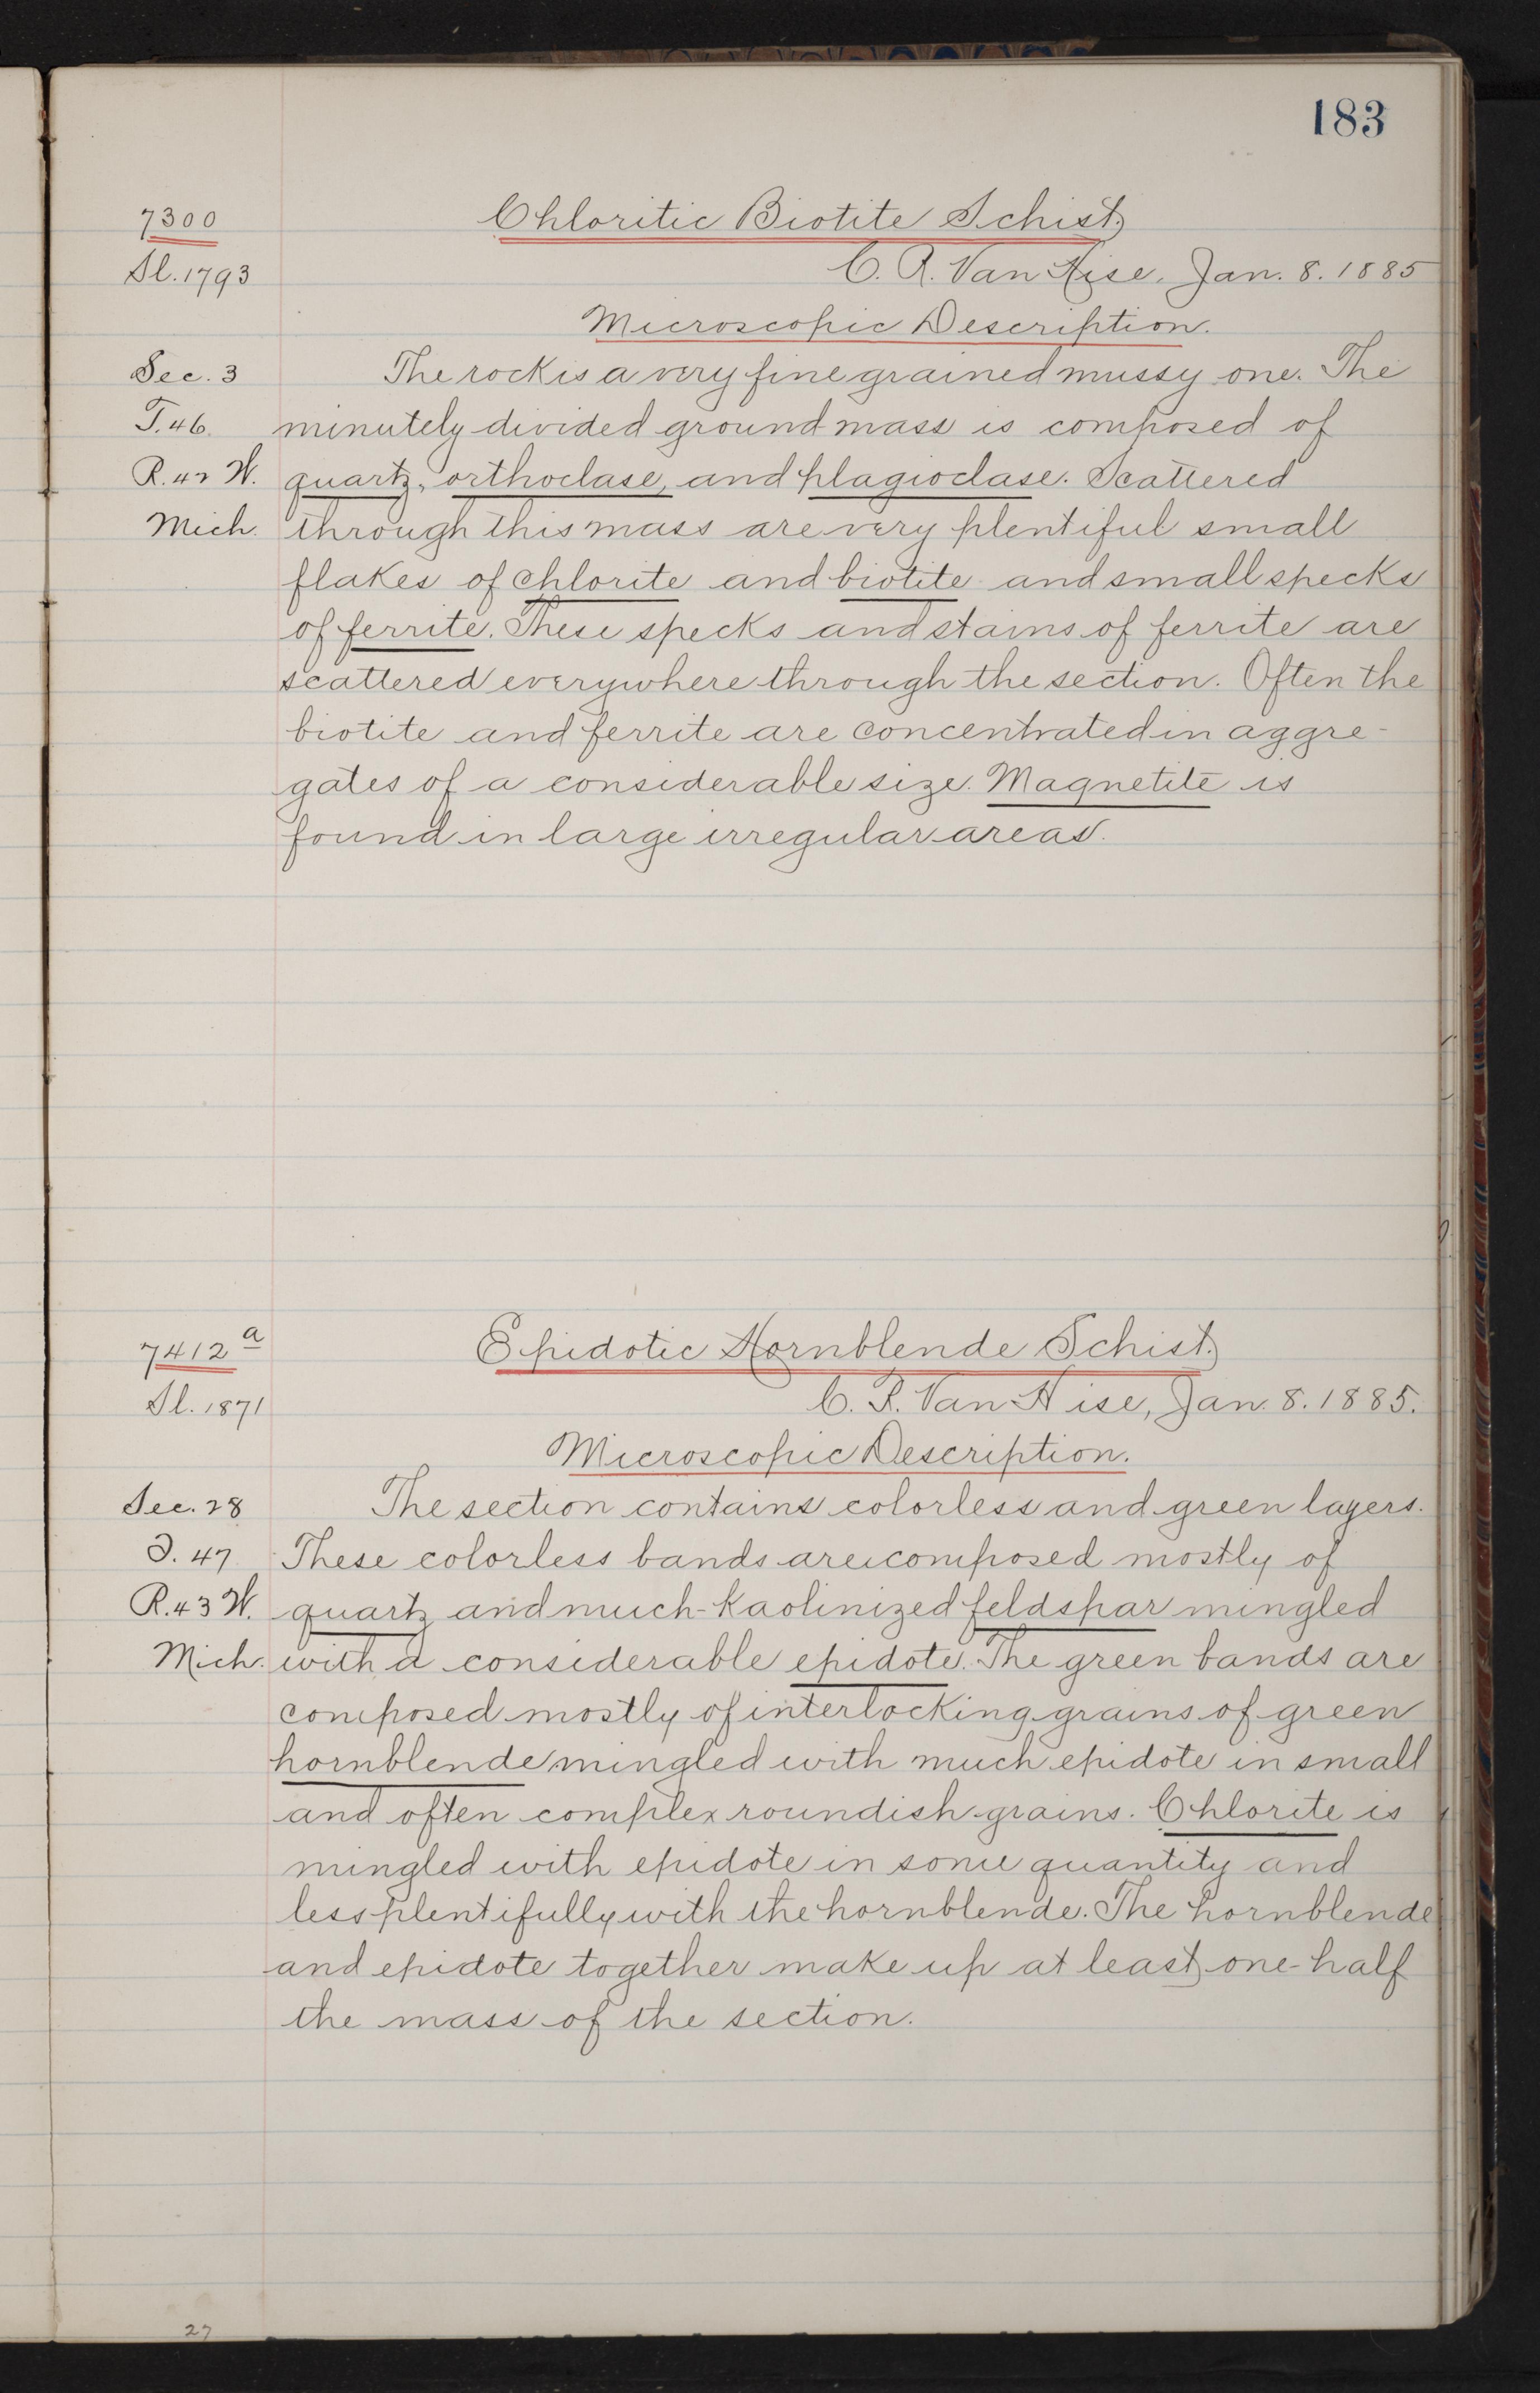 183
7300
Chloritic Biotite Schist.
Sl. 1793
C. R. Van Hise. Jan. 8. 1885
Microscopic Description.
Sec. 3
The rock is a very fine grained mussy one. The
T. 46.
minutely divided ground mass is composed of
R. 42 W.
quartz, orthoclase, and plagioclase. Scattered
Mich.
through this mass are very plentiful small
flakes of chlorite and biotite and small specks
of ferrite. These specks and stains of ferrite are
scattered everywhere through the section. Often the
biotite and ferrite are concentrated in aggre-
gates of a considerable size. Magnetite is
found in large irregular areas.
7412 a
Epidotic Hornblende Schist.
Sl. 1871
C. R. Van Hise, Jan. 8. 1885.
Microscopic Description.
Sec. 28
The section contains colorless and green layers.
T. 47
These colorless bands are composed mostly of
R. 43 W.
quartz and much-kaolinized feldspar mingled
Mich.
with a considerable epidote. The green bands are
composed mostly of interlocking grains of green
hornblende mingled with much epidote in small
and often complex roundish grains. Chlorite is
mingled with epidote in some quantity and
less plentifully with the hornblende. The hornblende
and epidote together make up at least one-half
the mass of the section.
27